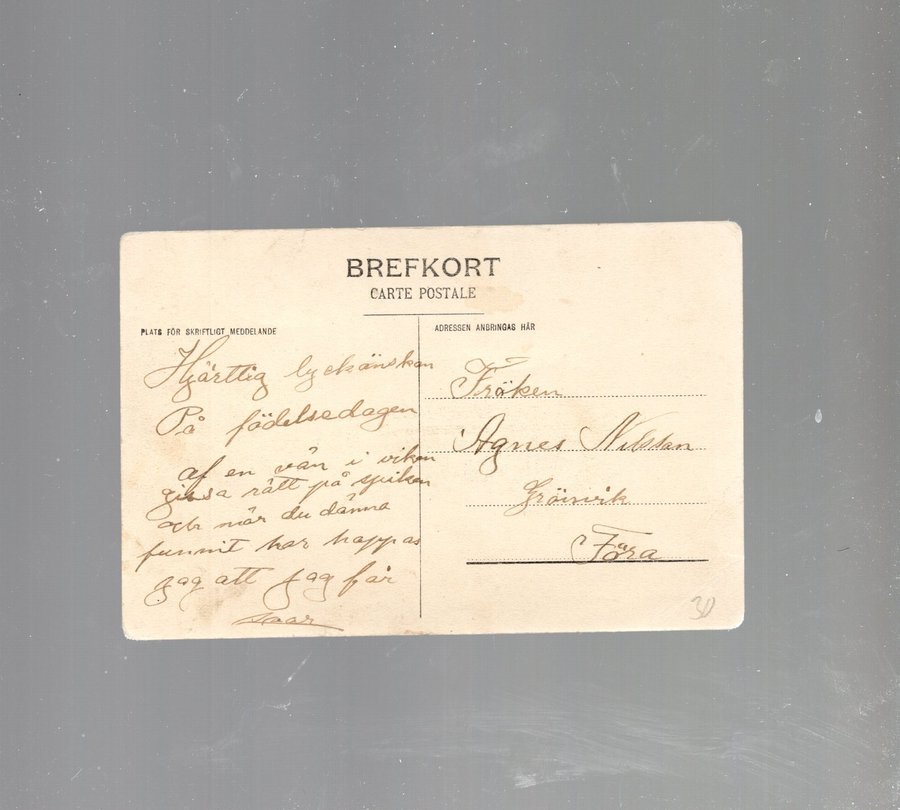 BREFKORT
CARTE POSTALE
PLATS FÖR SKRIFTLIGT MEDDELANDE
ADRESSEN ANBRINGAS HÄR
Hjärttlig lyckönskan
På födelsedagen
af en vän i viken
gissa rätt på spiken
och när du dänna
funnit har happas
jag att jag får
svar
Fröken
Agnes Nilsson
Grönvik
Föra
30